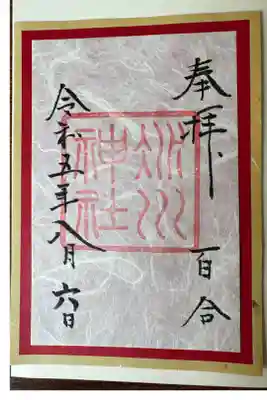 奉拝、
百合
氷川
神社
令和五年八月六日